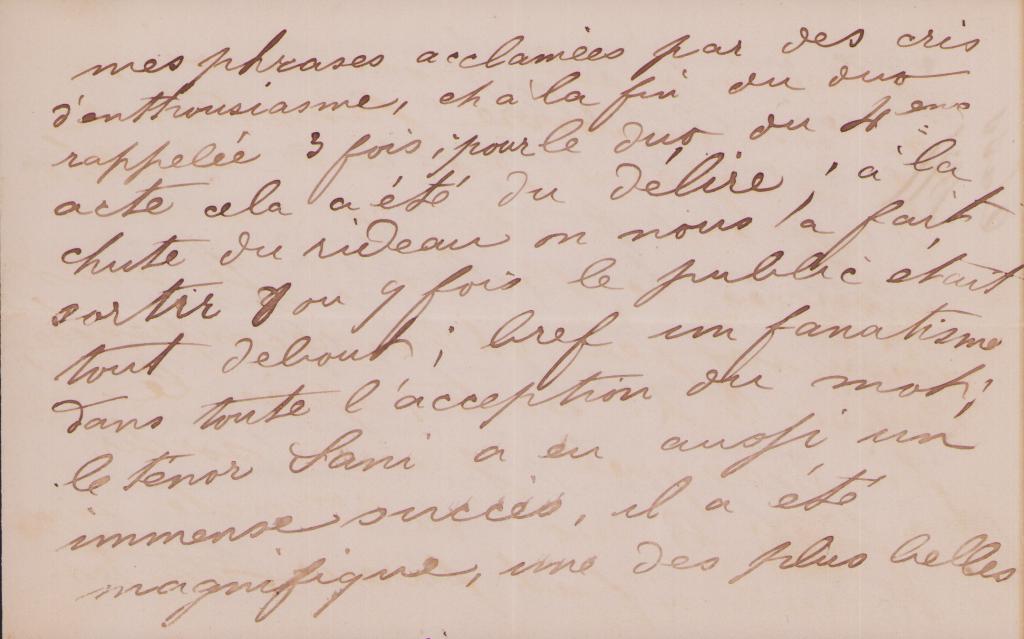 mes phrases acclamées par des cris
d'enthousiasme, et à la fin du duo
rappelée 3 fois; pour le duo du 4eme
acte cela a été du délire; à la
chute du rideau on nous a fait
sortir 8 ou 9 fois le public était
tout debout; bref un fanatisme
dans toute l'acception du mot;
le ténor Sani a eu aussi un
immense succès, il a été
magnifique, une des plus belles